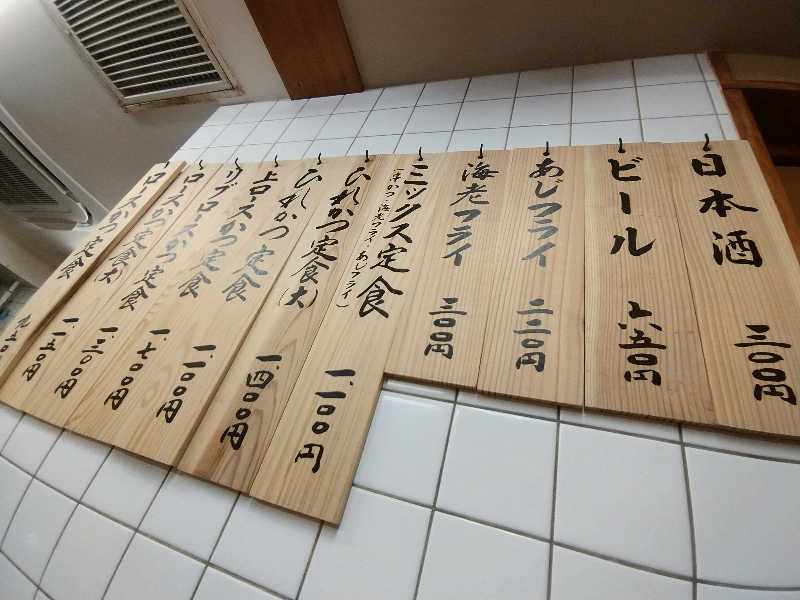 日本酒 三〇〇円
ビール 六五〇円
あじフライ 二三〇円
海老フライ 三〇〇円
ミックス定食
海老フライ・あじフライ)
一、一〇〇円
ひれかつ定食(大) 一、四〇〇円
ひれかつ定食 一、一〇〇円
上ロースかつ定食 一、七〇〇円
リブロースかつ定食 一、三〇〇円
ロースかつ定食(大) 一、一五〇円
ロースかつ定食 九五〇